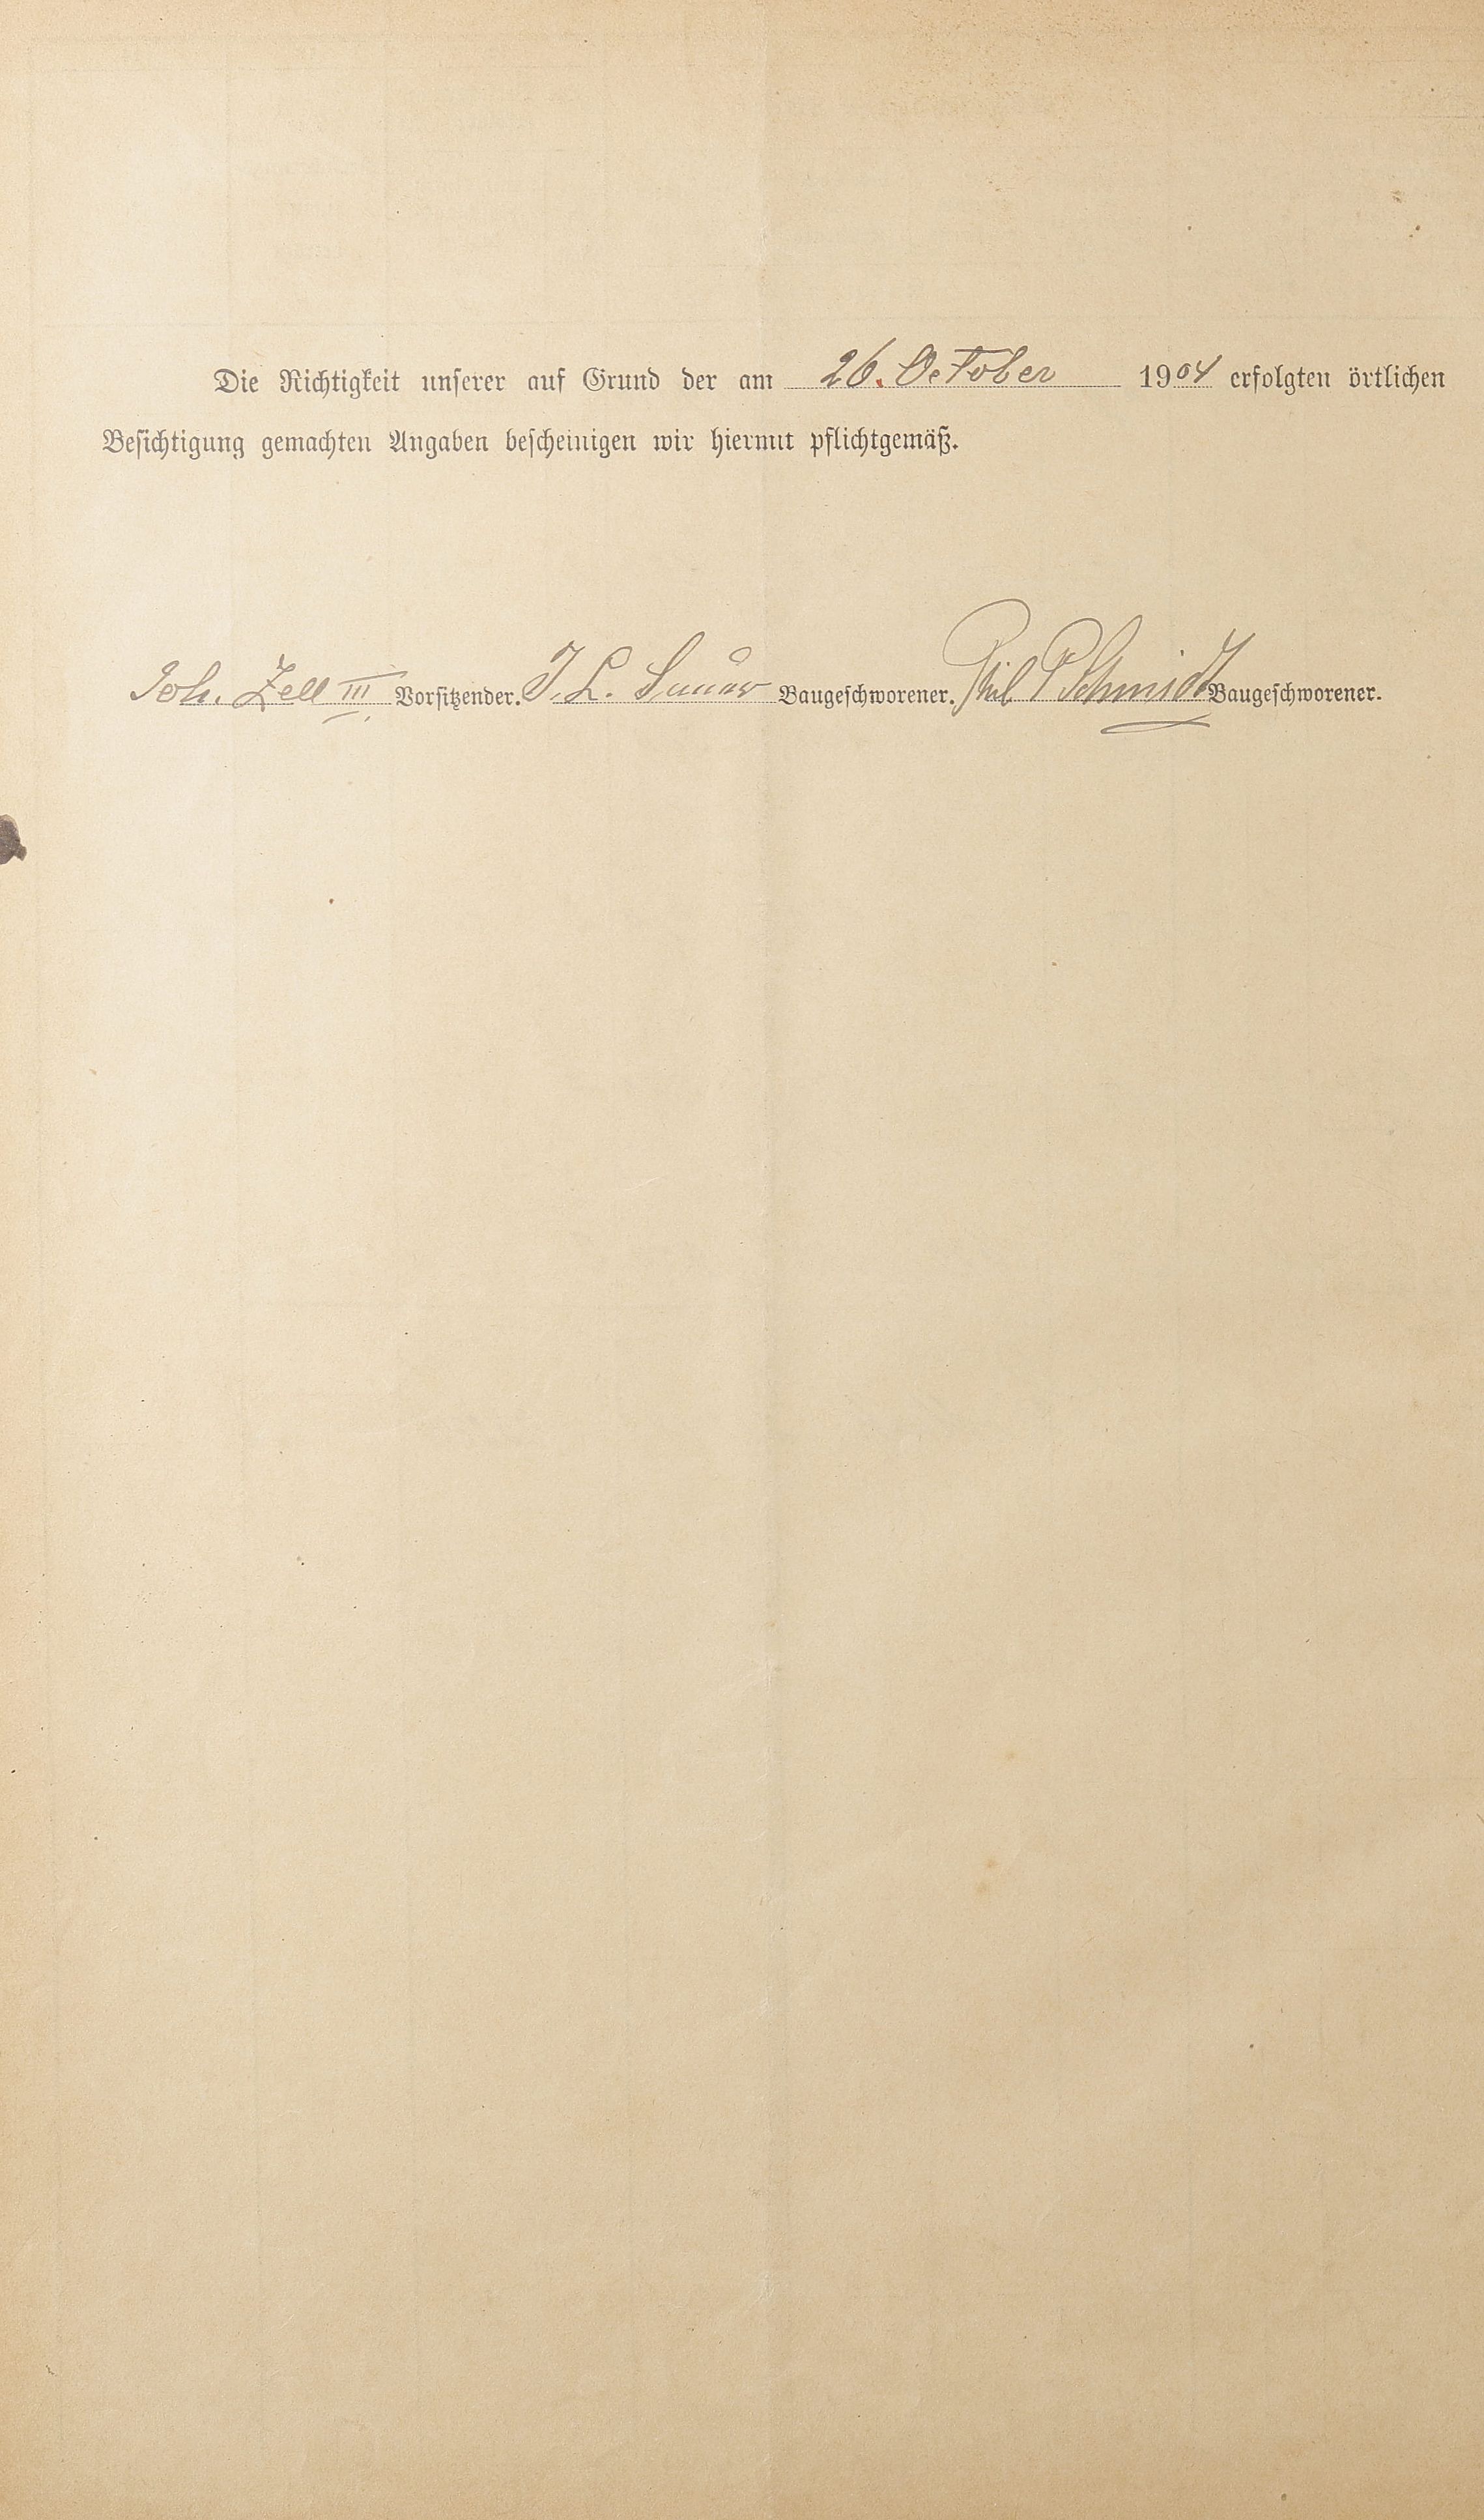 Die Richtigkeit unserer auf Grund der am 26. October 1904 erfolgten örtlichen
Besichtigung gemachten Angaben bescheinigen wir hiermit pflichtgemäß.
Joh. Zell III Vorsitzender. J. L. Sauer Baugeschworener. Phil P Schmidt Baugeschworener.